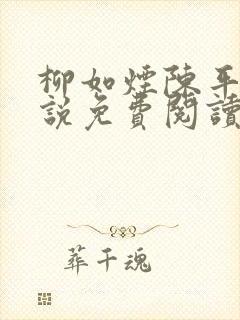 柳如煙陳平
說免費閱讀
葬千魂